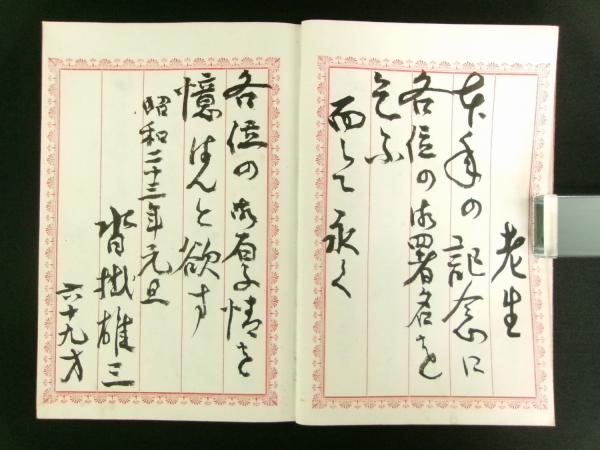 老生
本年の記念に
各位の御署名を
乞ふ
而して永く
各位の御厚情を
憶はんと欲す
昭和二十三年元旦
雄三
六十九才